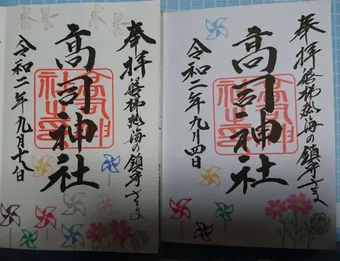 奉拝 磐梯熱海の鎮守さま
高司神社
令和二年九月十八日
奉拝 磐梯熱海の鎮守さま
高司神社
令和二年九月四日